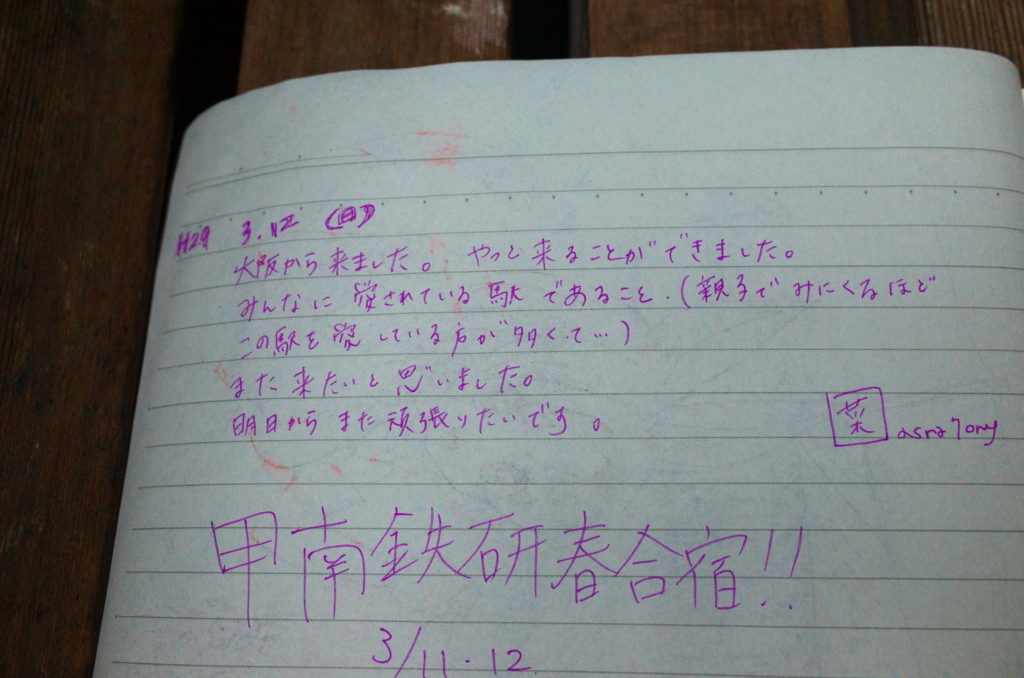 H29 3.12 (日)
大阪から来ました。 やっと来ることができました。
みんなに愛されている駅であること.(親子でみにくるほど
この駅を愛している方が多くて…)
また来たいと思いました。
明日からまた頑張りたいです。
菜
甲南鉄研春合宿!!
3/11.12